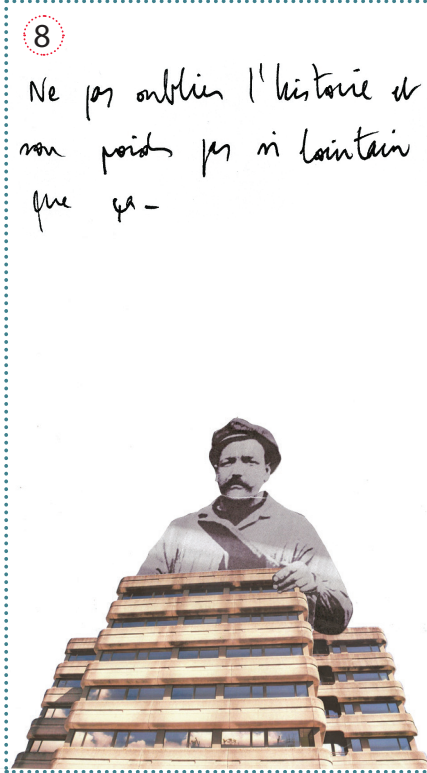 8
Ne pas oublier l'histoire et
son poids pas si lointain
que ça –